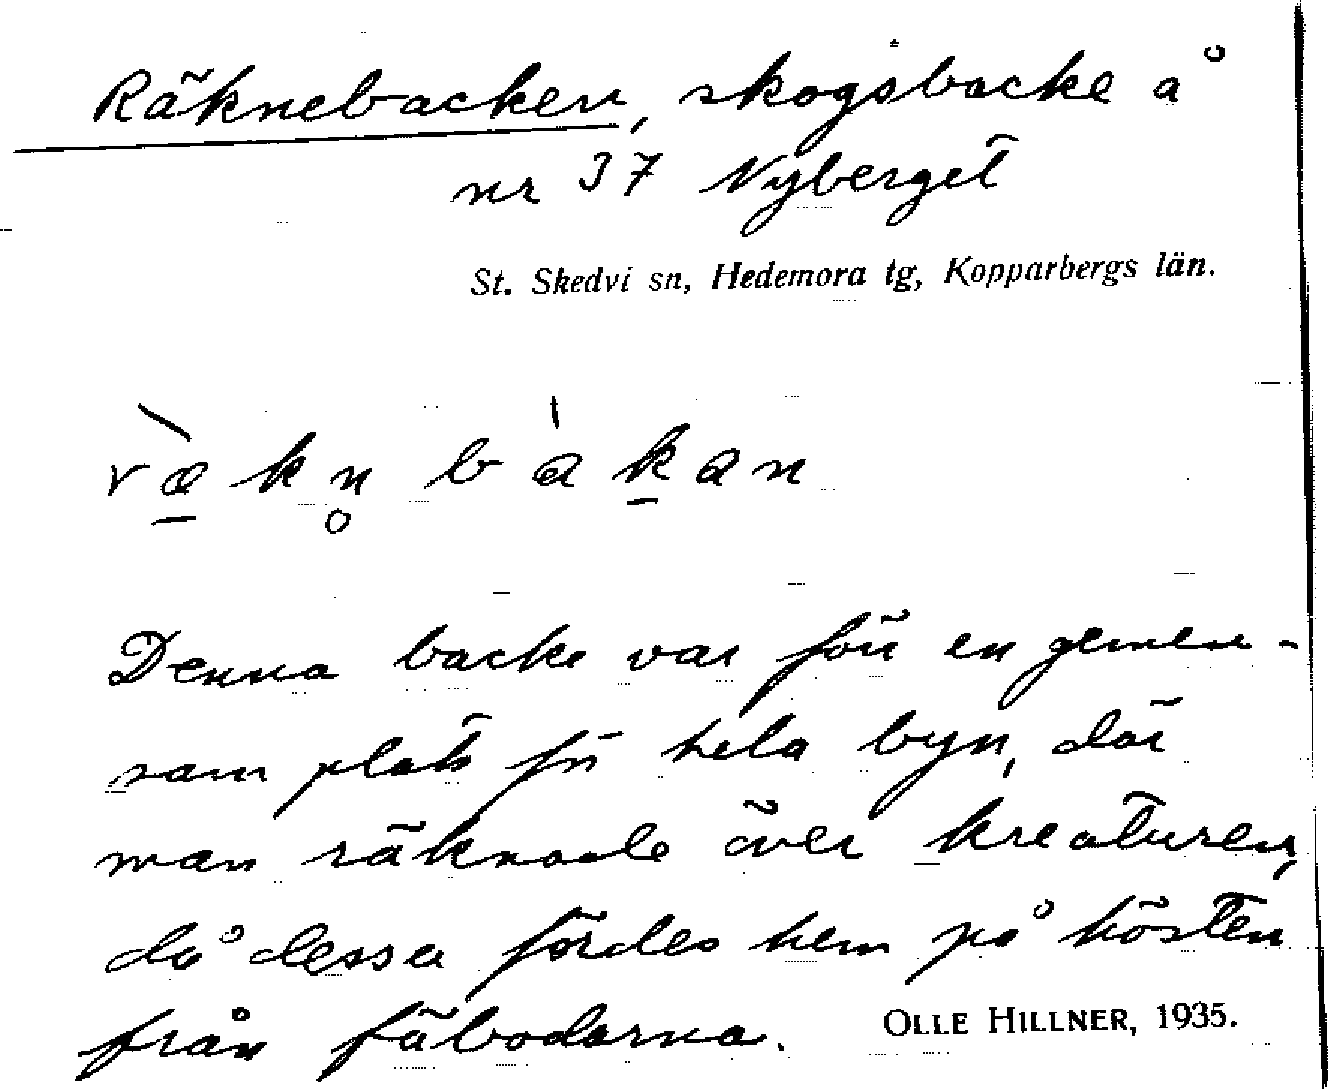 Räknebacken, skogsbacke å
nr 37 Nyberget
St. Skedvi sn, Hedemora tg, Kopparbergs län.
ræ̀kn̥ bákan
Denna backe var förr en gemen-
sam plats för hela byn, där
man räknade över kreaturen,
då dessa fördes hem på hösten
från fäbodarna. OLLE HILLNER, 1935.